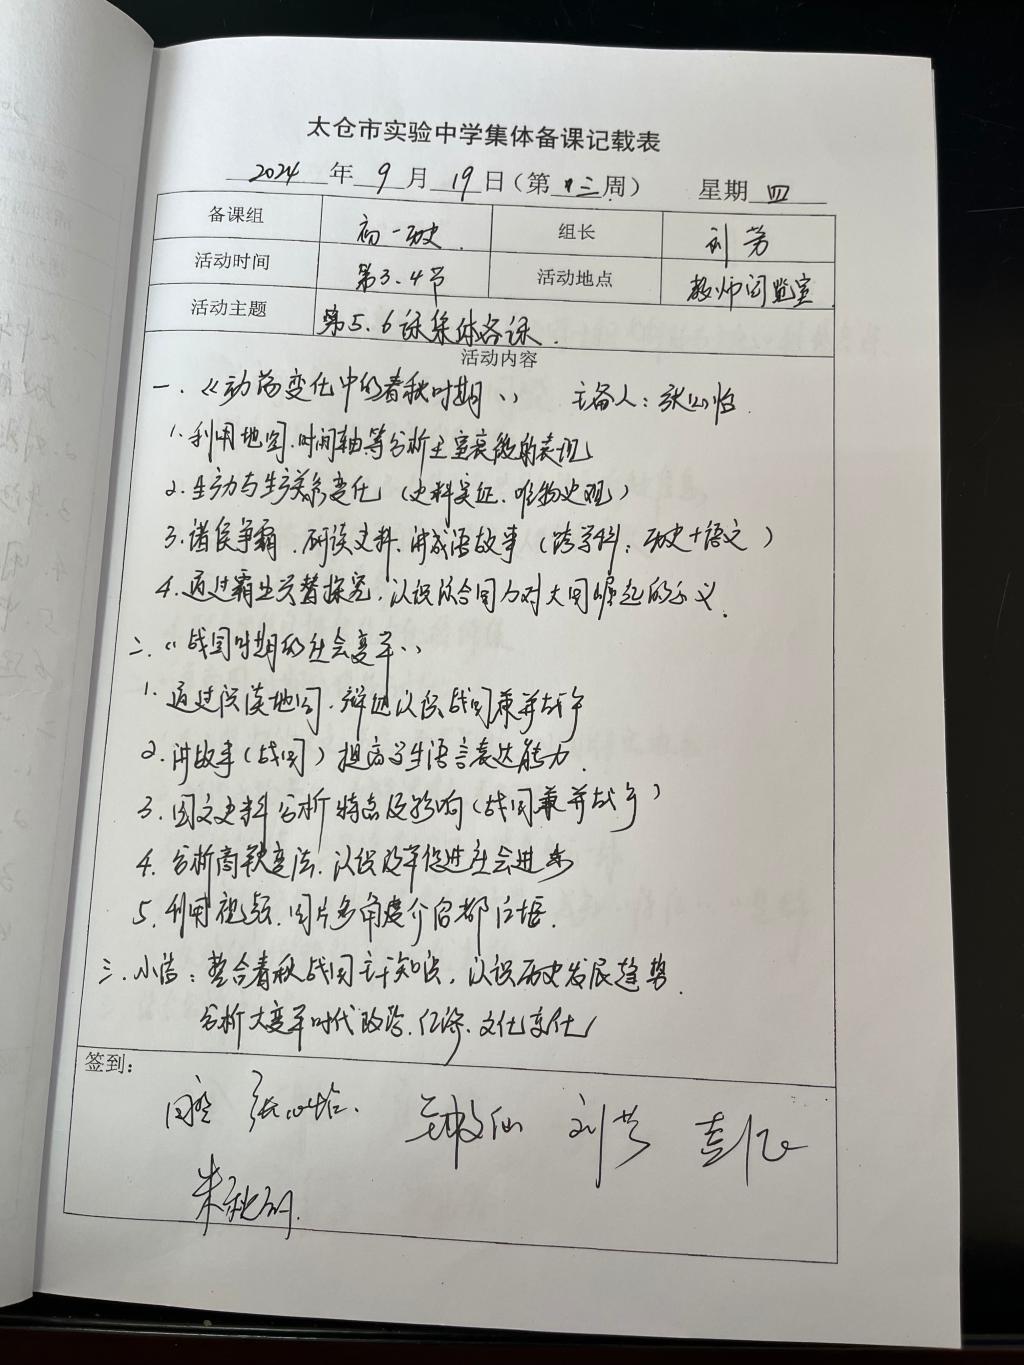 太仓市实验中学集体备课记载表
2024 年 9 月 19 日（第 三 周） 星期 四
备课组 初一历史 组长 刘芳
活动时间 第3、4节 活动地点 教师阅览室
活动主题 第5、6课集体备课.
活动内容
一、《动荡变化中的春秋时期》 主备人：张心怡
1、利用地图、时间轴等分析王室衰微的表现
2、生产力与生产关系变化（史料实证、唯物史观）
3、诸侯争霸、研读史料、讲成语故事（跨学科：历史+语文）
4、通过霸业兴替探究，认识综合国力对大国崛起的意义.
二、《战国时期的社会变革》
1、通过阅读地图、认识战国兼并战争
2、讲故事（战国）提高学生语言表达能力.
3、图文史料分析特点及影响（战国兼并战争）
4、分析商鞅变法、认识改革促进社会进步
5、利用视频、图片多角度介绍都江堰.
三、小结：整合春秋战国主干知识，认识历史发展趋势.
分析大变革时代政治、经济、文化变化
签到：
张心怡. 刘芳
朱秋